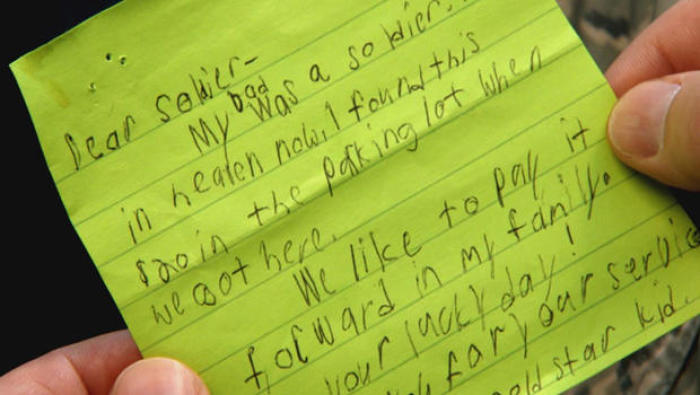 Dear soldier-
My dad was a soldier.
in heaven now. I found this
$20 in the parking lot when
we got here.
We like to pay it
forward in my family.
your lucky day!
for your servic
star kid.